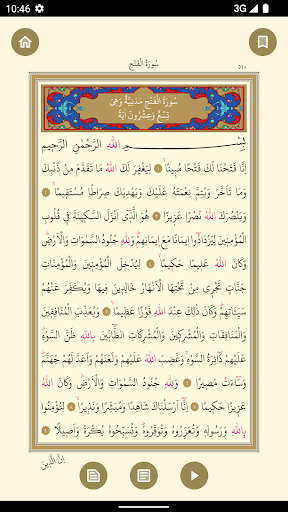 10:46 3G
سُورَةُ الْفَتْحِ ٥١٠
سُورَةُ الْفَتْحِ مَدَنِيَّةٌ وَهِيَ
تِسْعٌ وَعِشْرُونَ آيَةً
بِسْمِ اللهِ الرَّحْمٰنِ الرَّحِيمِ
اِنَّا فَتَحْنَا لَكَ فَتْحًا مُبِينًا ١ لِيَغْفِرَ لَكَ اللهُ مَا تَقَدَّمَ مِنْ ذَنْبِكَ
وَمَا تَاَخَّرَ وَيُتِمَّ نِعْمَتَهُ عَلَيْكَ وَيَهْدِيَكَ صِرَاطًا مُسْتَقِيمًا ٢
وَيَنْصُرَكَ اللهُ نَصْرًا عَزِيزًا ٣ هُوَ الَّذِى اَنْزَلَ السَّكِينَةَ فِى قُلُوبِ
الْمُؤْمِنِينَ لِيَزْدَادُوا اِيمَانًا مَعَ اِيمَانِهِمْ وَلِلهِ جُنُودُ السَّمٰوَاتِ وَالْاَرْضِ
وَكَانَ اللهُ عَلِيمًا حَكِيمًا ٤ لِيُدْخِلَ الْمُؤْمِنِينَ وَالْمُؤْمِنَاتِ
جَنَّاتٍ تَجْرِى مِنْ تَحْتِهَا الْاَنْهَارُ خَالِدِينَ فِيهَا وَيُكَفِّرَ عَنْهُمْ
سَيِّئَاتِهِمْ وَكَانَ ذٰلِكَ عِنْدَ اللهِ فَوْزًا عَظِيمًا ٥ وَيُعَذِّبَ الْمُنَافِقِينَ
وَالْمُنَافِقَاتِ وَالْمُشْرِكِينَ وَالْمُشْرِكَاتِ الظَّانِّينَ بِاللهِ ظَنَّ السَّوْءِ
عَلَيْهِمْ دَائِرَةُ السَّوْءِ وَغَضِبَ اللهُ عَلَيْهِمْ وَلَعَنَهُمْ وَاَعَدَّ لَهُمْ جَهَنَّمَ
وَسَاءَتْ مَصِيرًا ٦ وَلِلهِ جُنُودُ السَّمٰوَاتِ وَالْاَرْضِ وَكَانَ اللهُ
عَزِيزًا حَكِيمًا ٧ اِنَّا اَرْسَلْنَاكَ شَاهِدًا وَمُبَشِّرًا وَنَذِيرًا ٨ لِتُؤْمِنُوا
بِاللهِ وَرَسُولِهِ وَتُعَزِّرُوهُ وَتُوَقِّرُوهُ وَتُسَبِّحُوهُ بُكْرَةً وَاَصِيلًا ٩
اِنَّ الَّذِينَ